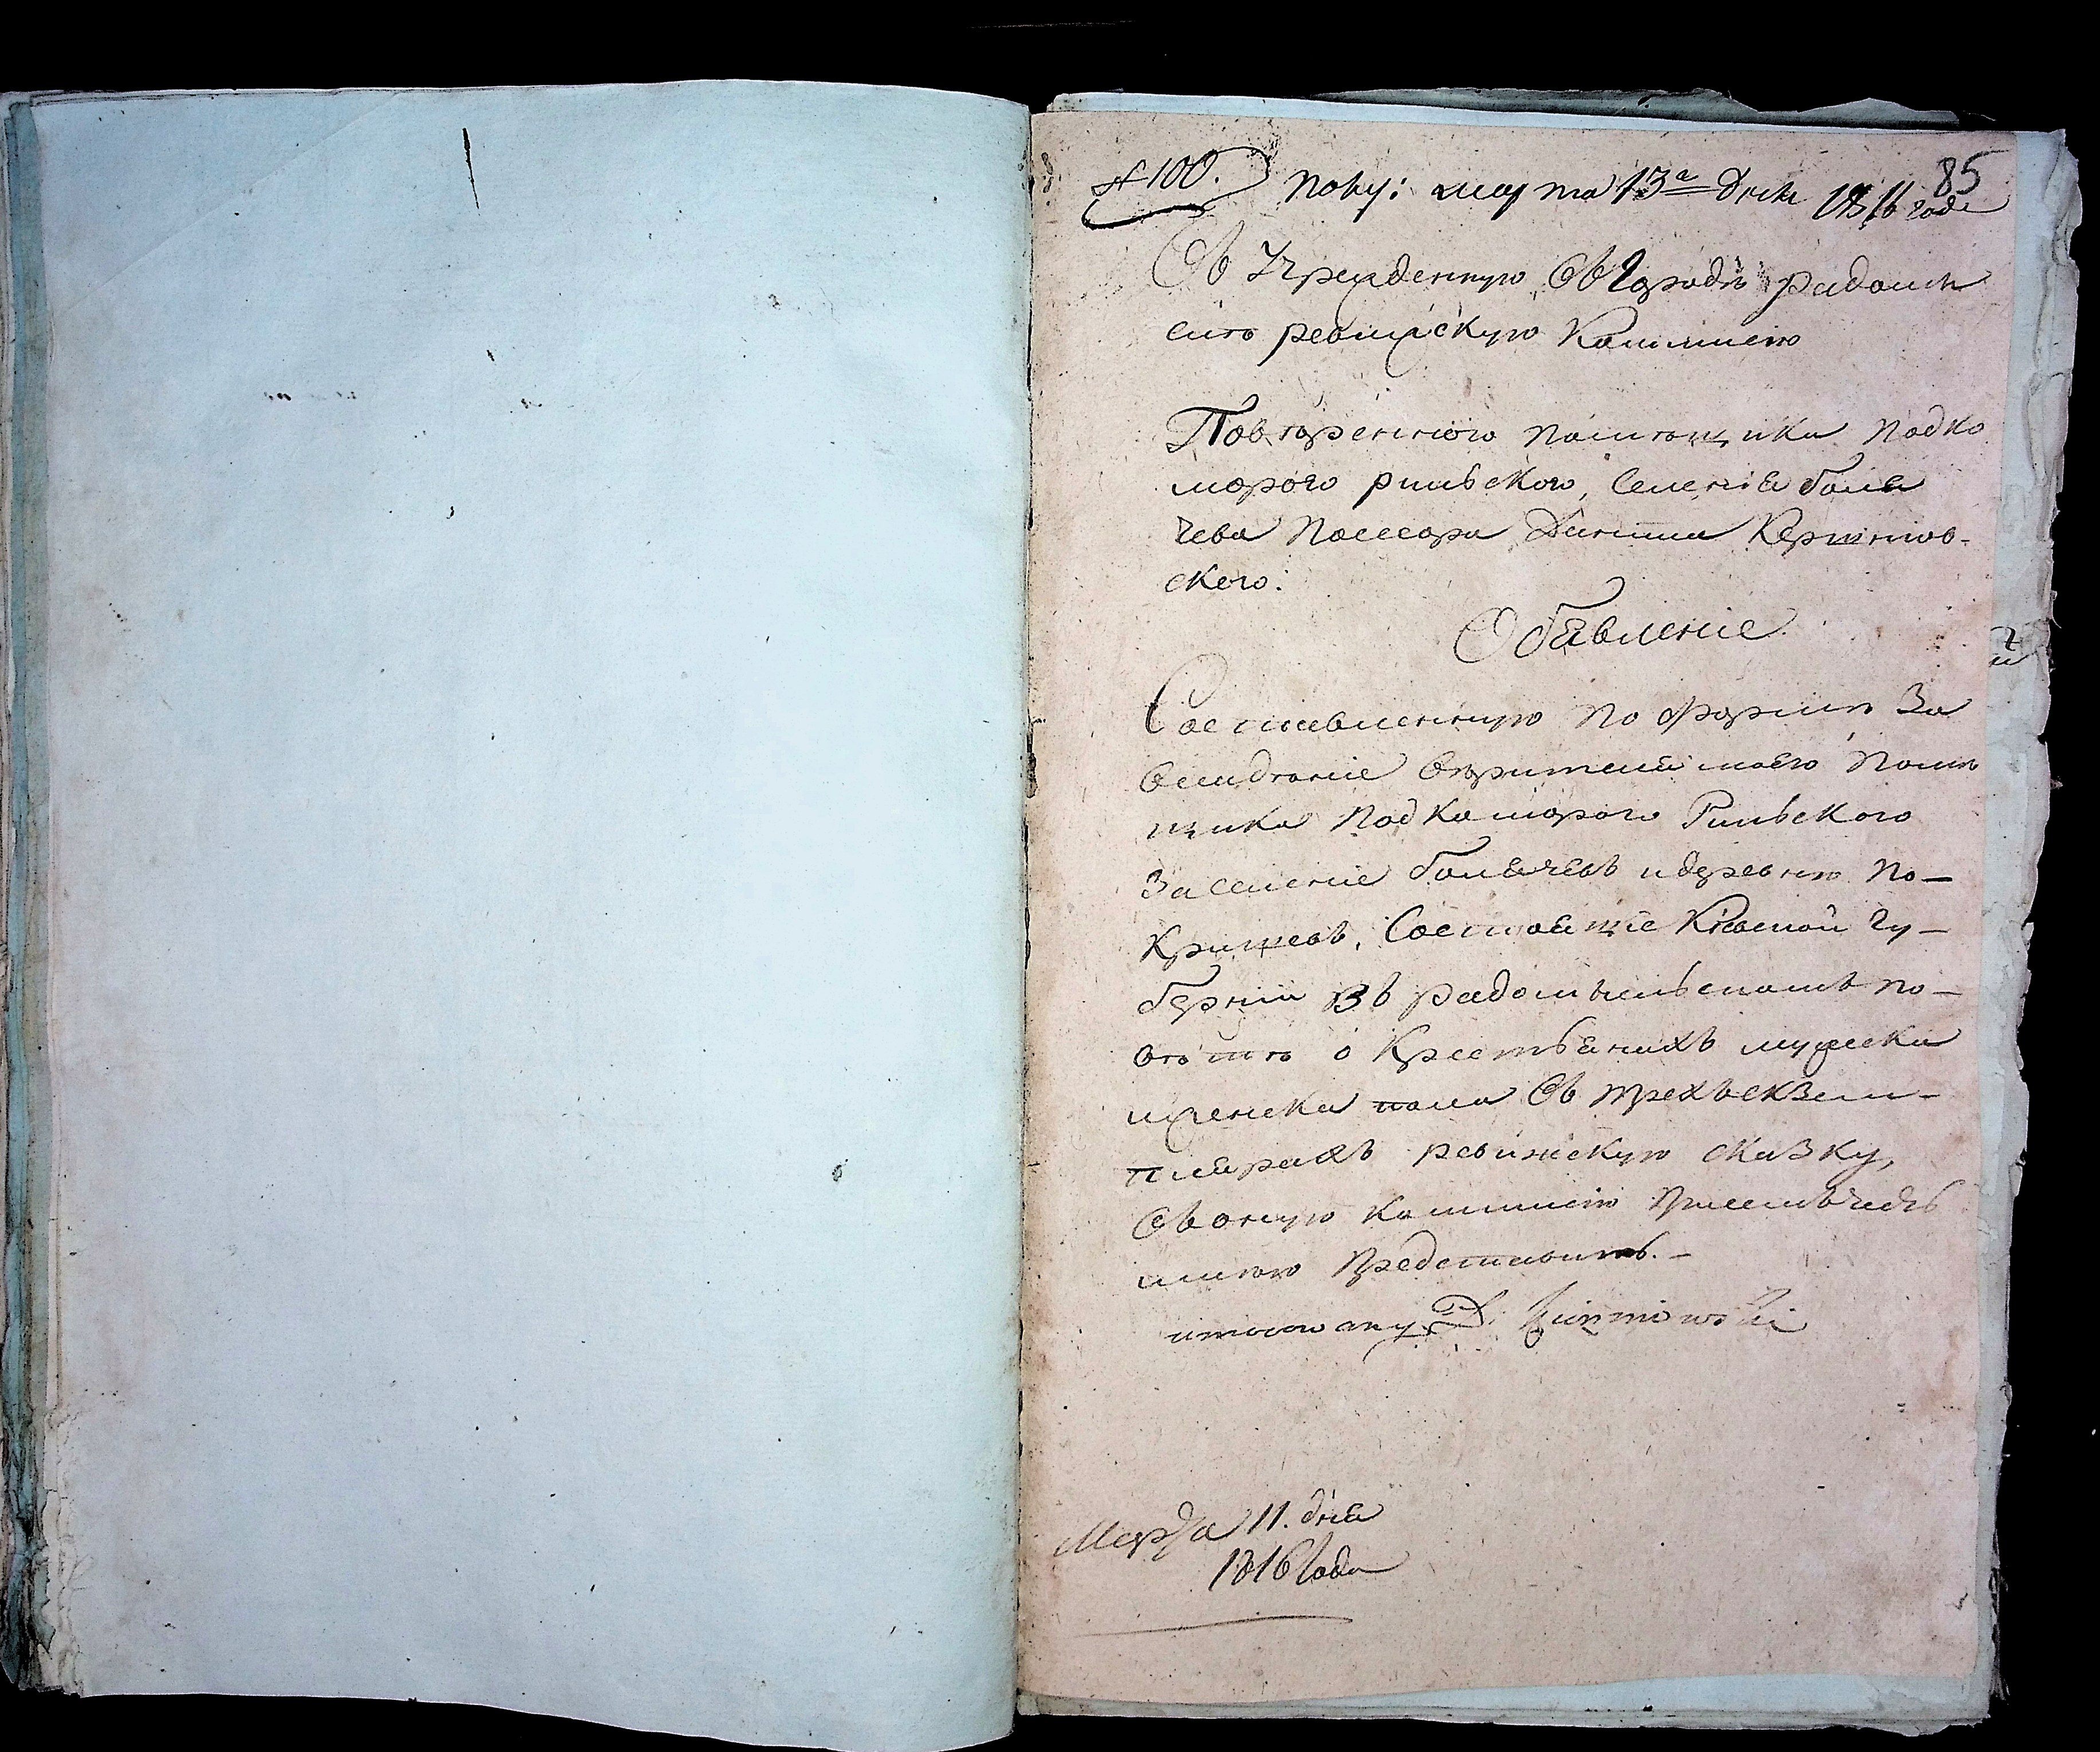 № 100. Полу: марта 13а дня 1816 года
85
Въ Учрежденную въ Городѣ радоми
слѣ ревизскую Коммисію
Повѣренного помѣщика Подко
морого рильского, селенія боля
чева Поссора
ского:
Обявленіе
Составленную по формѣ За
владѣніе вѣрителя моего помѣ
щика Подкоморого Рильского
За селеніе болячевъ и деревню По-
, Состоящіе Кіевской Гу-
берніи Въ радомысльскомъ по-
вѣтѣ о крестьянахъ мужеска
и женска пола въ трехъ екзем-
плярахъ ревижскую сказку,
въ оную коммисію при семъ честь
имѣю Представить. -
D.
Марта 11. дня
1816 Года